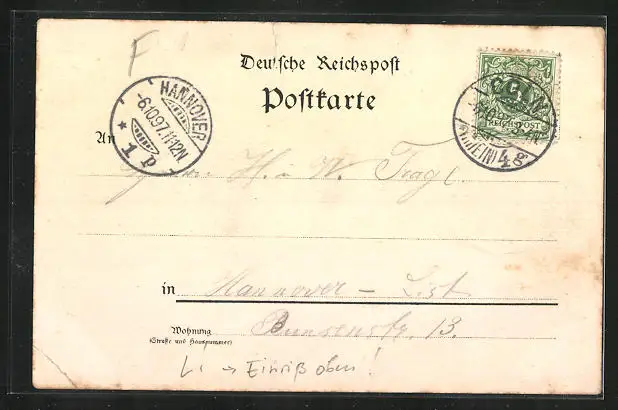 F
Deutsche Reichspost
Postkarte
HANNOVER
-6.10.97.11-12N
* 1 p
COELN
(RHEIN) 4g
REICHSPOST
An
H. u W.
in Hannover - List
Wohnung Bunsenstr. 13.
(Straße und Hausnummer)
→ Einriß oben!